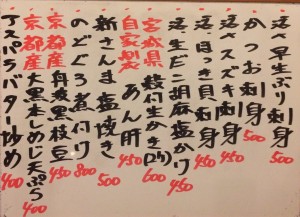 活〆早生ぶり刺身 500
かつお刺身 500
活〆スズキ刺身 450
活ほっき貝刺身 450
活・生だこ胡麻塩かけ 450
宮城県 殻付生かき(2ケ) 600
自家製 あん肝 450
新さんま塩焼き 500
のどぐろ煮付け 800
京都産 丹波黒枝豆 450
京都産 大黒本しめじ天ぷら 400
アスパラバター炒め 400